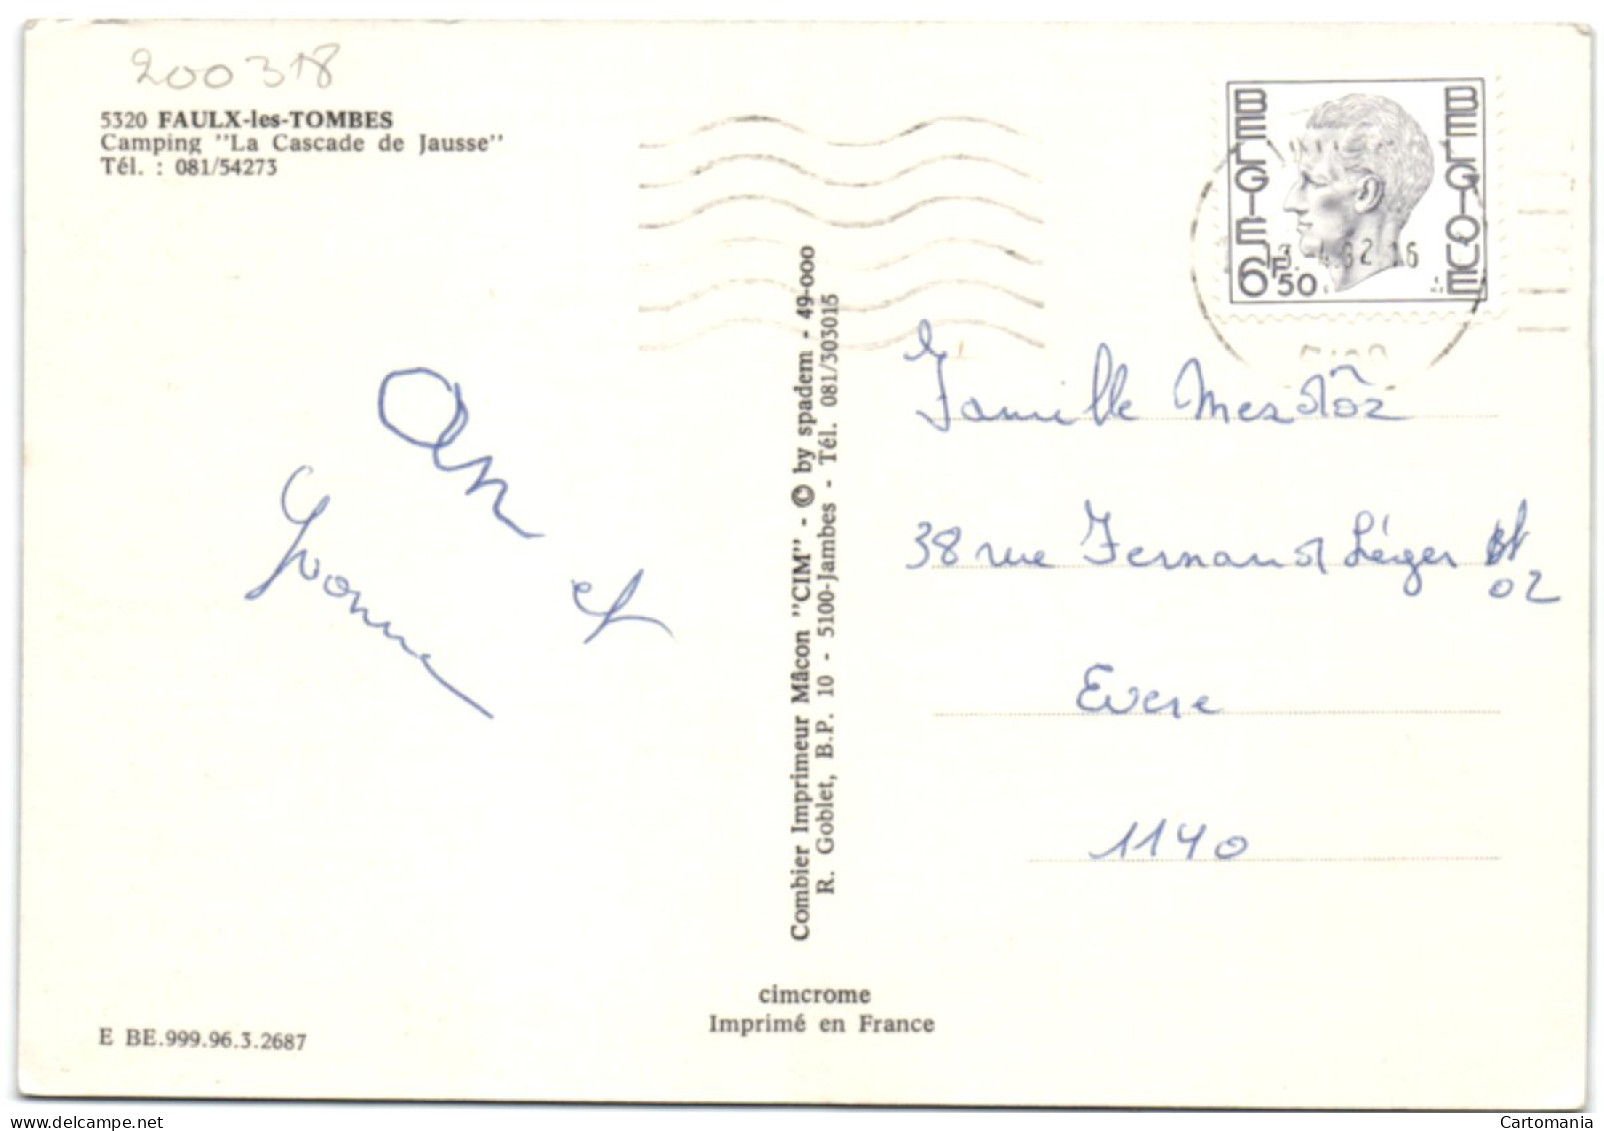 200318
5320 FAULX-les-TOMBES
Camping "La Cascade de Jausse"
Tél. : 081/54273
BELGIE
BELGIQUE
6F50
et
Yvonne
Combier Imprimeur Mâcon "CIM" - © by spadem - 49-000
R. Goblet, B.P. 10 - 5100-Jambes - Tél. 081/303015
Famille
38 rue Fernand Léger
02
Evere
1140
cimcrome
Imprimé en France
E BE.999.96.3.2687
Cartomania